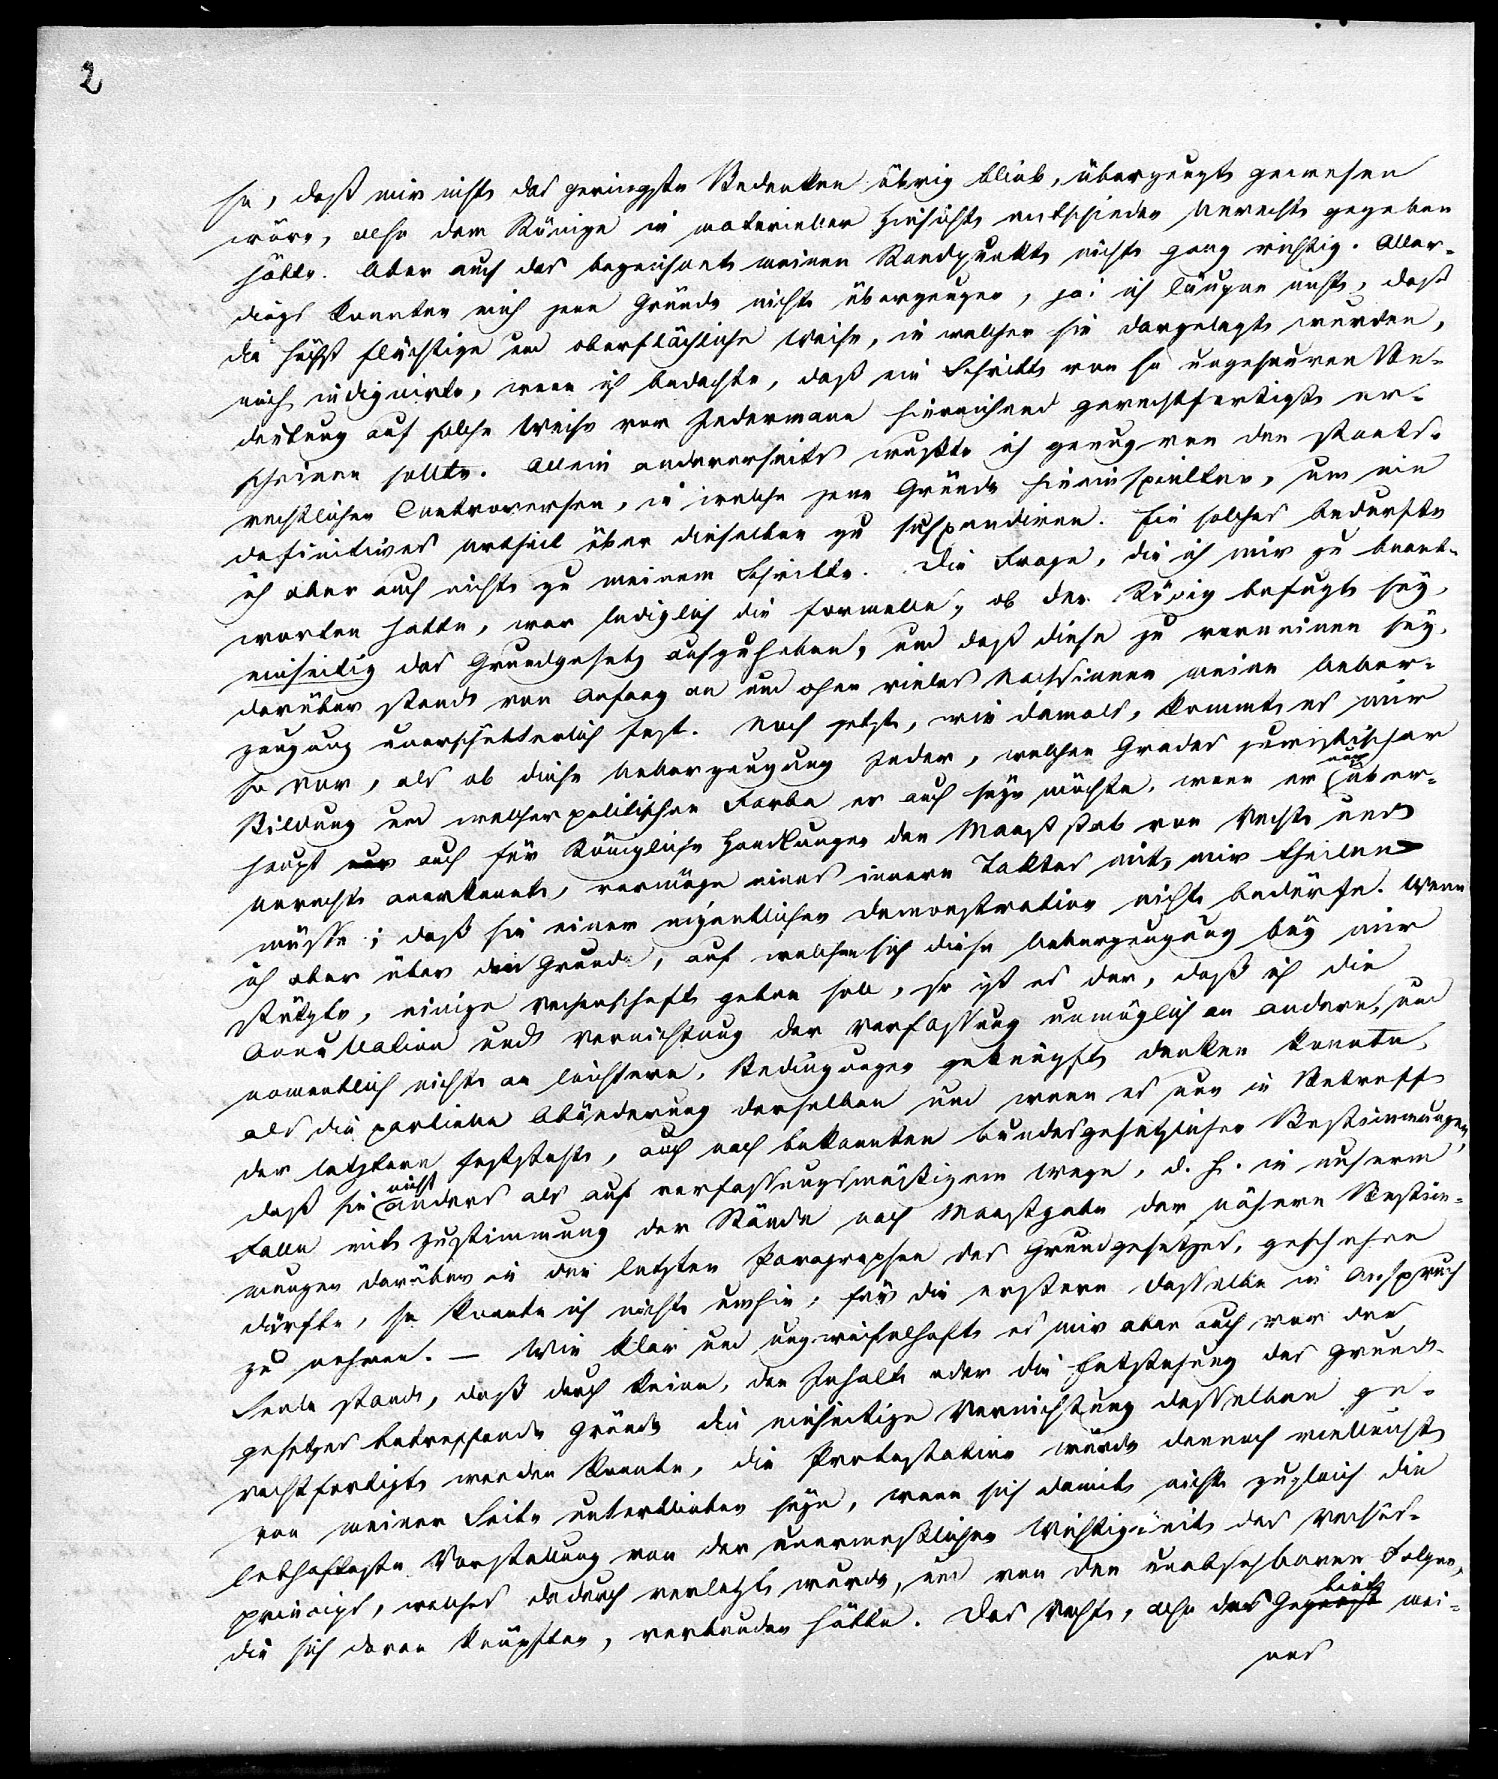 2
so, daß mir nicht das geringste Bedenken übrig blieb, überzeugt gewesen
wäre, also dem Könige in materieller Hinsicht entschieden Unrecht gegeben
hätte. Aber auch das bezeichnet meinen Standpunkt nicht ganz richtig. Aller-
dings konnten mich jene Gründe nicht überzeugen, ja! ich läugne nicht, daß
die höchst flüchtige und oberflächliche Weise, in welcher sie dargelegt wurden,
mich indignirte, wenn ich bedachte, daß ein Schritt von so ungeheurer Be-
deutung auf solche Weise vor Jedermann hinreichend gerechtfertigt er-
scheinen sollte. Allein andererseits wußte ich genug von den staats-
rechtlichen Controversen, in welche jene Gründe hineinspielten, um ein
definitives Urtheil über dieselben zu suspendiren. Ein solches bedurfte
ich aber auch nicht zu meinem Schritte. Die Frage, die ich mir zu beant-
worten hatte, war lediglich die formelle, ob der König befugt sey,
einseitig das Grundgesetz aufzuheben, und daß diese zu verneinen sey,
darüber stand von Anfang an und ohne vieles Nachsinnen meine Ueber-
zeugung unerschütterlich fest. Noch jetzt, wie damals, kommt es mir
so vor, als ob diese Ueberzeugung Jeder, welchen Grades juristischer
Bildung und welcher politischen Farbe er auch seyn möchte, wenn er nur über-
haupt nur auch für Königliche Handlungen den Maaßstab von Recht und
Unrecht anerkennt, vermöge eines innern Taktes mit mir theilen
müsse; daß sie einer eigentlichen Demonstration nicht bedürfe. Wenn
ich aber über den Grund, auf welchen sich diese Ueberzeugung bey mir
stützte, einige Rechenschaft geben soll, so ist es der, daß ich die
Annullation und Vernichtung der Verfassung unmöglich an andere, und
namentlich nicht an leichtere, Bedingungen geknüpft denken konnte,
als die partielle Abänderung derselben und wenn es nun in Betreff
der letztern feststeht, auch nach bekannten bundesgesetzlichen Bestimmungen,
daß sie nicht anders als auf verfassungsmäßigem Wege, d. h. in unserm
Falle mit Zustimmung der Stände nach Maaßgabe der nähern Bestim-
mungen darüber in den letzten Paragraphen des Grundgesetzes, geschehen
dürfte, so konnte ich nicht umhin, für die erstere dasselbe in Anspruch
zu nehmen. — Wie klar und unzweifelhaft es mir aber auch vor der
Seele stand, daß durch keine, den Inhalt oder die Entstehung des Grund-
gesetzes betreffende Gründe die einseitige Vernichtung desselben ge-
rechtfertigt werden konnte, die Protestation würde dennoch vielleicht
von meiner Seite unterblieben seyn, wenn sich damit nicht zugleich die
lebhafteste Vorstellung von der unermeßlichen Wichtigkeit des Rechts-
princips, welches dadurch verletzt wurde, und von den unabsehbaren Folgen,
die sich daran knüpften, verbunden hätte. Das Recht, also das Gebiet mei-
nes